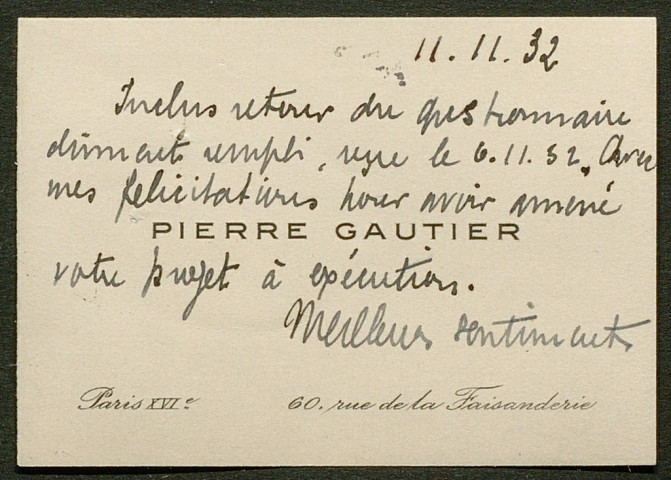 11.11.32
Inclus retour du questionnaire
dûment rempli, reçu le 6.11.32, Avec
mes félicitations pour avoir amené
PIERRE GAUTIER
votre projet à exécution.
Meilleurs sentiments
Paris XVIe 60, rue de la Faisanderie